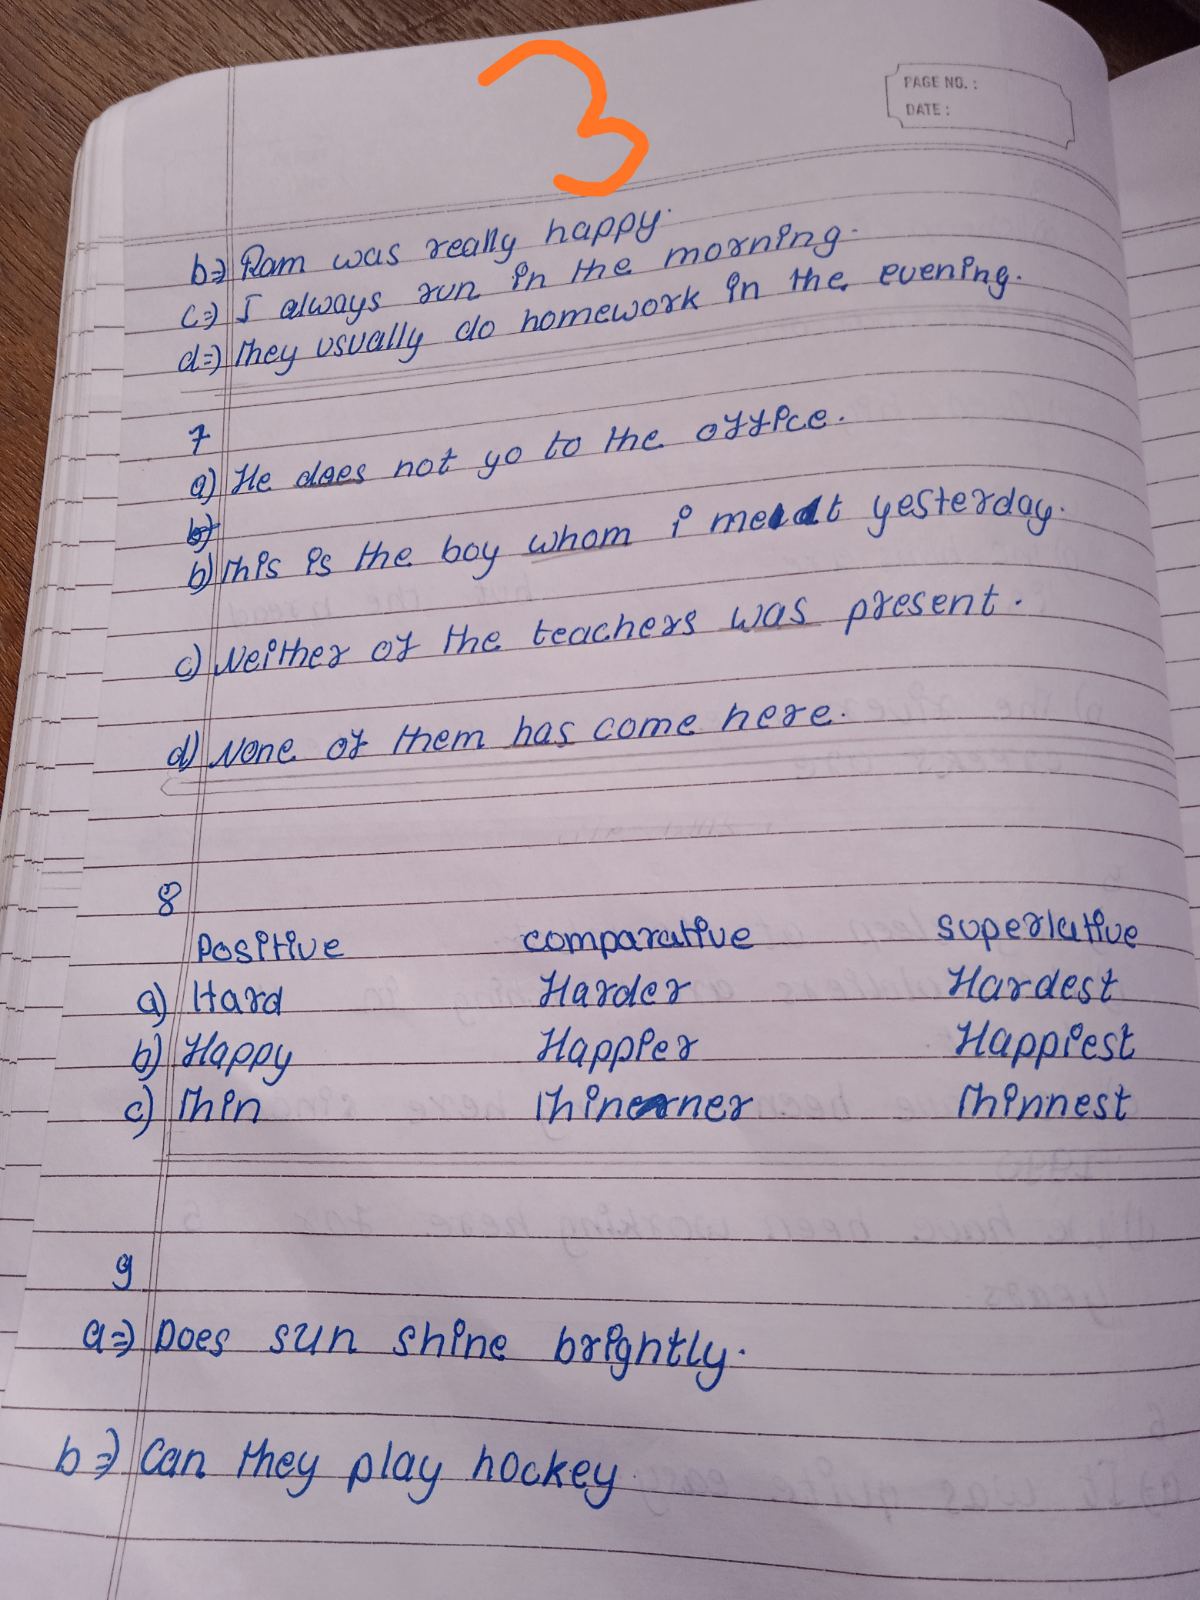 3
PAGE NO. :
DATE :
b⇒ Ram was really happy.
c⇒) I always run in the morning.
d⇒) They usually do homework in the evening.
7
a) He does not go to the office.
b)
b) This is the boy whom i met yesterday.
c) Neither of the teachers was present.
d) None of them has come here.
8
Positive comparative superlative
a) Hard Harder Hardest
b) Happy Happier Happiest
c) Thin Thinner Thinnest
9
a⇒) Does sun shine brightly.
b⇒) Can they play hockey.